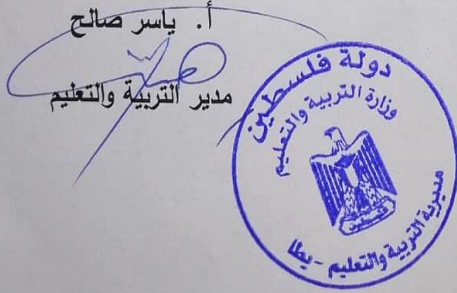 أ. ياسر صالح
مدير التربية والتعليم
دولة فلسطين
وزارة التربية والتعليم
فلسطين
مديرية التربية والتعليم - يطا